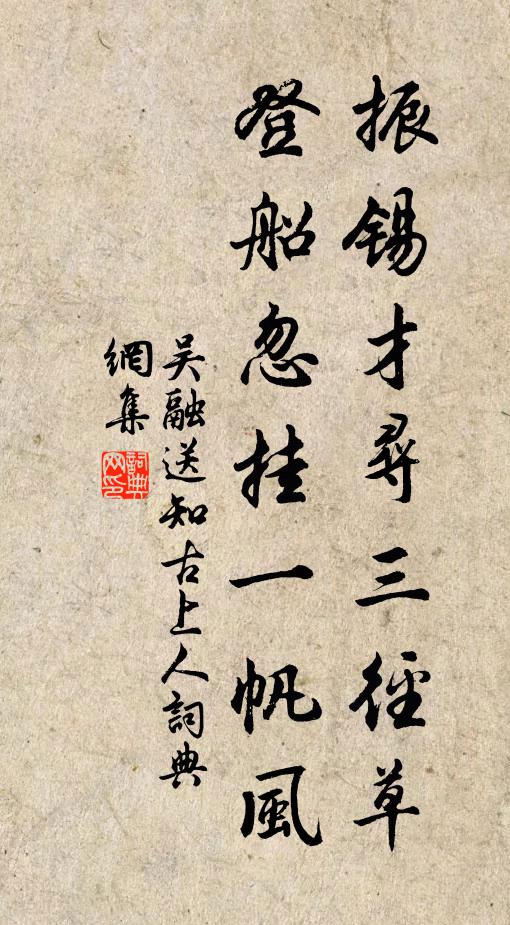 振锡才尋三徑草
登船忽挂一帆風
吴融送知古上人詞典
網集
詞典
网印